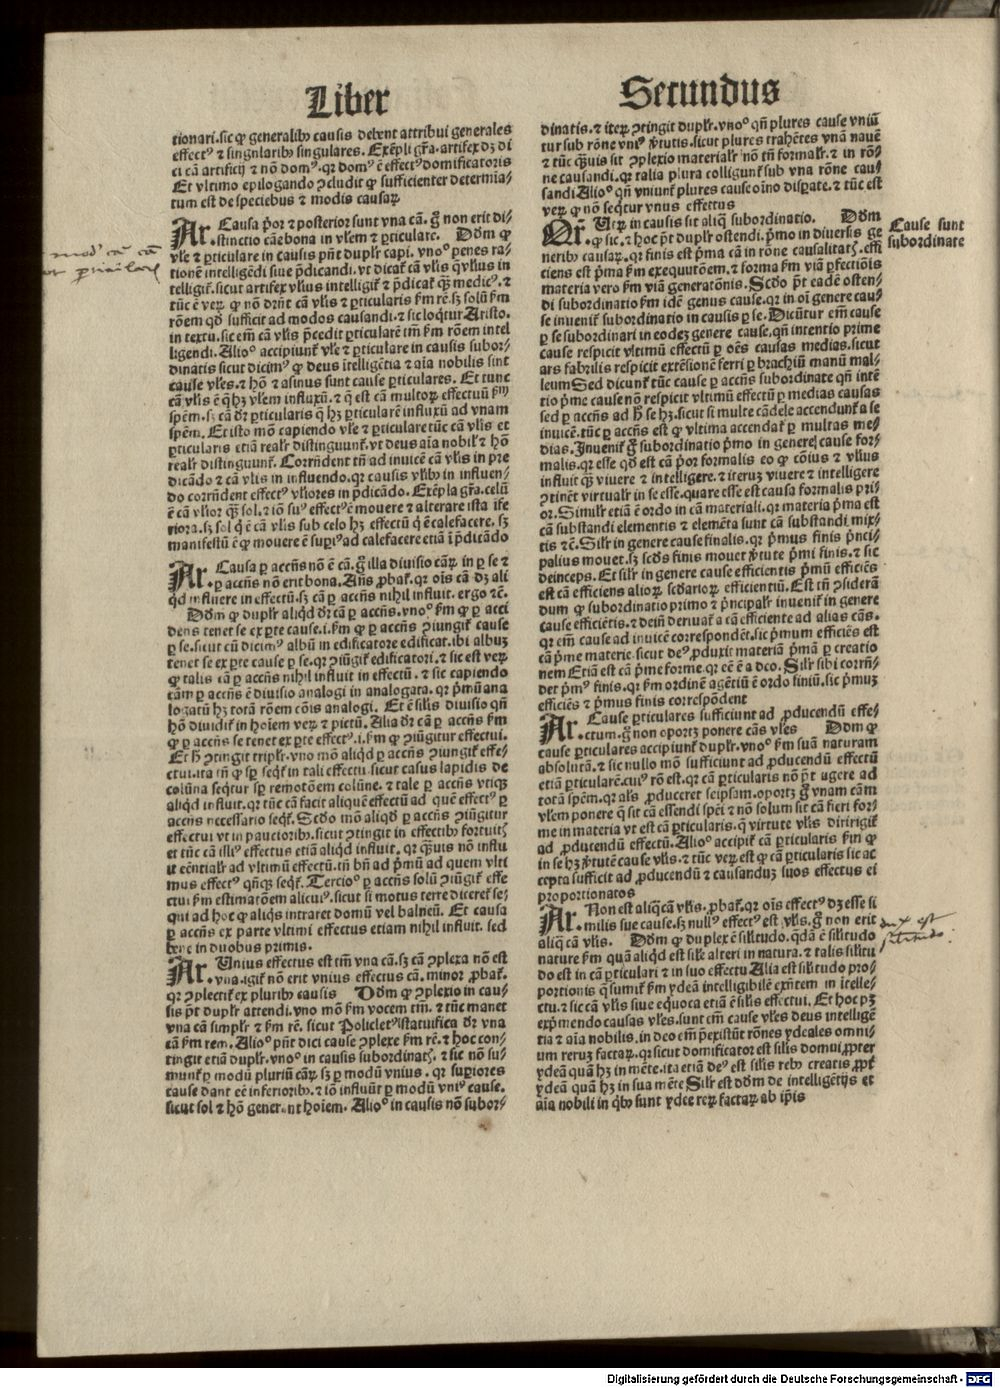 Liber
tionari.sic ꝙ generalibꝰ causis debent attribui generales
effectꝰ ⁊ singularibꝰ singulares. Exēpli gr̄a. artifex dꝫ di
ci cā artificij ⁊ nō domꝰ. qꝛ domꝰ ē effectꝰ domificatoris
Et vltimo epilogando ꝯcludit ꝙ sufficienter determia⸗
tum est de speciebus ⁊ modis causaꝝ
Ar Causa p̄or ⁊ posterior sunt vna cā. g̊ non erit di⸗
stinctio cāe bona in vlem ⁊ ꝑticularē. Dōm ꝙ
vle ⁊ ꝑticulare in causis pn̄t duplr̄ capi. vnoº penes ra⸗
tionē intelligēdi siue p̄dicandi. vt dicat̄ cā vlis qͥ vlius in
telligit̄. sicut artifex vlius intelligit̄ ⁊ p̄dicat̄ qͣꝫ medicꝰ. ⁊
tūc ē veꝝ ꝙ nō dn̄t cā vlis ⁊ ꝑticularis km̄ rē. sꝫ solū km̄
rōem qd̄ sufficit ad modos causandi. ⁊ sic loqͥtur Aristo.
in textu. sic em̄ cā vlis p̄cedit ꝑticularē tm̄ km̄ rōem intel
ligendi. Alioº accipiunt̄ vle ⁊ ꝑticulare in causis subor⸗
dinatis sicut dicimꝰ ꝙ deus itelligētia ⁊ aīa nobilis sint
cause vles. ⁊ hō ⁊ asinus sunt cause ꝑticulares. Et tunc
cā vlis ē q̄ hꝫ vlem influxū. ⁊ q̄ est cā multoꝝ effectuū km̄
spēm. sꝫ cā dr̄ ꝑticularis q̄ hꝫ ꝑticularē influxū ad vnam
spēm. Et isto mō capiendo vle ⁊ ꝑticulare tūc cā vlis et
ꝑticularis etiā realr̄ distinguunt̄. vt deus aīa nobil̄ ⁊ hō
realr̄ distinguunt̄. Corrn̄dent tn̄ ad inuicē cā vlis in pre
dicādo ⁊ cā vlis in influendo. qꝛ causis vlibꝰ in influen⸗
do corrn̄dent effectꝰ vliores in p̄dicādo. Exēpla gr̄a. celū
ē cā vlior qͣꝫ sol. ⁊ iō suꝰ effectꝰ ē mouere ⁊ alterare ista ife
riora. sꝫ sol q̄ ē cā vlis sub celo hꝫ effectū q̄ ē calefacere. sꝫ
manifestū ē ꝙ mouere ē supiꝰ ad calefacere etiā ī p̄dicādo
Ar Causa ꝑ accn̄s nō ē cā. g̊ illa diuisio cāꝝ in ꝑ se ⁊
ꝑ accn̄s nō erit bona. An̄s ꝓbat̄. qꝛ oīs cā dꝫ ali
qd̄ influere in effectū. sꝫ cā ꝑ accn̄s nihil influit. ergo ⁊c̄.
Dōm ꝙ duplr̄ aliqd̄ dr̄ cā ꝑ accn̄s. vnoº km̄ ꝙ ꝑ acci
dens tenet se ex ꝑte cause. i. km̄ ꝙ ꝑ accn̄s ꝯiungit̄ cause
ꝑ se. sicut cū dicimꝰ albū in edificatore edificat. ibi albuꝫ
tenet se ex ꝑte cause ꝑ se. qꝛ ꝯiūgit̄ edificatori. ⁊ sic est veꝝ
ꝙ talis cā ꝑ accn̄s nihil influit in effectū. ⁊ sic capiendo
cām ꝑ accn̄s ē diuisio analogi in analogata. qꝛ p̄mū ana
logatū hꝫ totā rōem cōis analogi. Et ē silis diuisio qn̄
hō diuidit̄ in hoīem veꝝ ⁊ pictū. Alia dr̄ cā ꝑ accn̄s km̄
ꝙ ꝑ accn̄s se tenet ex ꝑte effectꝰ. i. km̄ ꝙ ꝯiūgitur effectui.
Et h̄ ꝯtingit triplr̄. vno mō aliqd̄ ꝑ accn̄s ꝯiungit̄ effe⸗
ctui. ita tn̄ ꝙ sꝑ seqt̄ in tali effectu. sicut casus lapidis de
colūna seqͥtur sꝑ remotōem colūne. ⁊ tale ꝑ accn̄s vtiqꝫ
aliqd̄ influit. qꝛ tūc cā facit aliquē effectū ad quē effectꝰ ꝑ
accn̄s necessario seqt̄. Scd̄o mō aliqd̄ ꝑ accn̄s ꝯiūgitur
effectui vt in paucioribꝰ. sicut ꝯtingit in effectibꝰ fortuitꝭ
et tūc cā illiꝰ effectus etiā aliqd̄ influit. qꝛ qͣuis nō influ
it eēntialr̄ ad vltimū effectū. tn̄ bn̄ ad p̄mū ad quem vlti
mus effectꝰ qn̄qꝫ seqt̄. Tercioº ꝑ accn̄s solū ꝯiūgit̄ effe
ctui km̄ estimatōem alicuiꝰ. sicut si motus terre diceret̄ se⸗
qui ad hoc ꝙ aliqͥs intraret domū vel balneū. Et causa
ꝑ accn̄s ex parte vltimi effectus etiam nihil influit. sed
bene in duobus primis.
Ar Vnius effectus est tm̄ vna cā. sꝫ cā ꝯplexa nō est
vna. igit̄ nō erit vnius effectus cā. minor ꝓbat̄.
qꝛ ꝯplectit̄ ex pluribꝰ causis Dōm ꝙ ꝯplexio in cau⸗
sis pt̄ duplr̄ attendi. vno mō km̄ vocem tm̄. ⁊ tūc manet
vna cā simplr̄ ⁊ km̄ rē. sicut Policletꝰ ⁊ statuifica dr̄ vna
cā km̄ rem. Alioº pn̄t dici cause ꝯplexe km̄ rē. ⁊ hoc con⸗
tingit etiā duplr̄. vnoº in causis subordinatꝭ. ⁊ sic nō su⸗
munt̄ ꝑ modū pluriū cāꝝ sꝫ ꝑ modū vnius. qꝛ supiores
cause dant eē inferioribꝰ. ⁊ iō influūt ꝑ modū vniꝰ cause.
sicut sol ⁊ hō generant hoīem. Alioº in causis nō subor⸗
Secundus
dinatis. ⁊ iteꝝ ꝯtingit duplr̄. vnoº qn̄ plures cause vniū
tur sub rōne vniꝰ v̄tutis. sicut plures trahētes vnā nauē
⁊ tūc qͣuis sit ꝯplexio materialr̄ nō tn̄ formalr̄. ⁊ in rō⸗
ne causandi. qꝛ talia plura colligunt̄ sub vna rōne cau⸗
sandi Alioº qn̄ vniunt̄ plures cause oīno disꝑate. ⁊ tūc est
veꝝ ꝙ nō seqͥtur vnus effectus
Qr̄ Vtꝝ in causis sit aliq̄ subordinatio. Dōm
ꝙ sic. ⁊ hoc pt̄ duplr̄ ostendi. p̄mo in diuersis ge
neribꝰ causaꝝ. qꝛ finis est p̄ma cā in rōne causalitatꝭ. effi
ciens est p̄ma km̄ exequutōem. ⁊ forma km̄ viā ꝑfectiōis
materia vero km̄ viā generatōnis. Scd̄o pt̄ eadē osten⸗
di subordinatio km̄ idē genus cause. qꝛ in oī genere cau⸗
se inuenit̄ subordinatio in causis ꝑ se. Dicūtur em̄ cause
ꝑ se subordinari in eodeꝫ genere cause. qn̄ intentio prime
cause respicit vltimū effectū ꝑ oēs causas medias. sicut
ars fabrilis respicit extēsionē ferri ꝑ brachiū manū mal⸗
leum Sed dicunt̄ tūc cause ꝑ accn̄s subordinate qn̄ intē
tio p̄me cause nō respicit vltimū effectū ꝑ medias causas
sed ꝑ accn̄s ad h̄ se hꝫ. sicut si multe cādele accendunt̄ a se
inuicē. tūc ꝑ accn̄s est ꝙ vltima accendat̄ ꝑ multas me⸗
dias. Inuenit̄ g̊ subordinatio p̄mo in genere cause for⸗
malis. qꝛ esse qd̄ est cā p̄or formalis eo ꝙ cōius ⁊ vlius
influit qͣꝫ viuere ⁊ intelligere. ⁊ iteruꝫ viuere ⁊ intelligere
ꝯtinēt virtualr̄ in se esse. quare esse est causa formalis pri⸗
or. Similr̄ etiā ē ordo in cā materiali. qꝛ materia p̄ma est
cā substandi elementis ⁊ elemēta sunt cā substandi mix⸗
tis ⁊c̄. Silr̄ in genere cause finalis. qꝛ p̄mus finis p̄nci⸗
palius mouet. sꝫ scd̄s finis mouet v̄tute p̄mi finis. ⁊ sic
deinceps. Et silr̄ in genere cause efficientis p̄mū efficiēs
est cā efficiens alioꝝ scd̄arioꝝ efficientiū. Est tn̄ ꝯsiderā
dum ꝙ subordinatio primo ⁊ p̄ncipalr̄ inuenit̄ in genere
cause efficiētis. ⁊ dein̄ deriuat̄ a cā efficiente ad alias cās.
qꝛ em̄ cause ad inuicē correspondēt. sic p̄mum efficiēs est
cā p̄me materie. sicut deꝰ ꝓduxit materiā p̄mā ꝑ creatio
nem Etiam est cā p̄me forme. qꝛ eē ē a deo. Silr̄ sibi corrn̄⸗
det p̄mꝰ finis. qꝛ km̄ ordinē agētiū ē ordo finiū. sic p̄muꝫ
efficiēs ⁊ p̄mus finis correspōdent
Ar Cause ꝑticulares sufficiunt ad ꝓducendū effe⸗
ctum. g̊ non oportꝫ ponere cās vles Dōm ꝙ
cause ꝑticulares accipiunt̄ duplr̄. vnoº km̄ suā naturam
absolutā. ⁊ sic nullo mō sufficiunt ad ꝓducendū effectū
etiā ꝑticularē. cuiꝰ rō est. qꝛ cā ꝑticularis nō pt̄ agere ad
totā spēm. qꝛ als̄ ꝓduceret seipsam. oportꝫ g̊ vnam cām
vlem ponere q̄ sit cā essendi spēi ⁊ nō solum sit cā fieri for⸗
me in materia vt est cā ꝑticularis. q̄ virtute vlis dirigit̄
ad ꝓducendū effectū. Alioº accipit̄ cā ꝑticularis km̄ ꝙ
in se hꝫ v̄tutē cause vlis. ⁊ tūc veꝝ est ꝙ cā ꝑticularis sic ac
cepta sufficit ad ꝓducendū ⁊ causanduꝫ suos effectus ei
proportionatos
Ar Non est aliq̄ cā vlis. ꝓbat̄. qꝛ oīs effectꝰ dꝫ esse si
milis sue cause. sꝫ nullꝰ effectꝰ est vlis. g̊ non erit
aliq̄ cā vlis. Dōm ꝙ duplex ē silitudo. qdā ē silitudo
nature km̄ quā aliqd̄ est sile alteri in natura. ⁊ talis silitu
do est in cā ꝑticulari ⁊ in suo effectu Alia est silitudo pro⸗
portionis q̄ sumit̄ km̄ ydeā intelligibilē exn̄tem in itelle⸗
ctu. ⁊ sic cā vlis siue equoca etiā ē silis effectui. Et hoc pꝫ
exp̄mendo causas vles. sunt em̄ cause vles deus intelligē
tia ⁊ aīa nobilis. in deo em̄ p̄existūt rōnes ydeales omni⸗
um reruꝫ factaꝝ. qꝛ sicut domificator est silis domui ꝓpter
ydeā quā hꝫ in mēte. ita etiā deꝰ est silis rebꝰ creatis ꝓpt̄
ydeā quā hꝫ in sua mēte Silr̄ est dōm de intelligētijs et
aīa nobili in qͥbꝰ sunt ydee reꝝ factaꝝ ab ip̄is
Cause sunt
subordinate
Digitalisierung gefördert durch die Deutsche Forschungsgemeinschaft - DFG